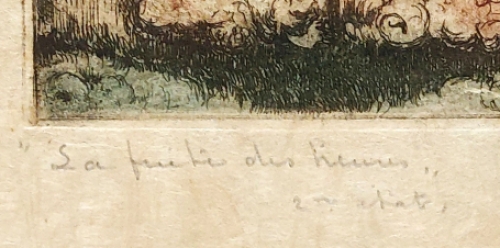 "La fuite des heures„
2me état,